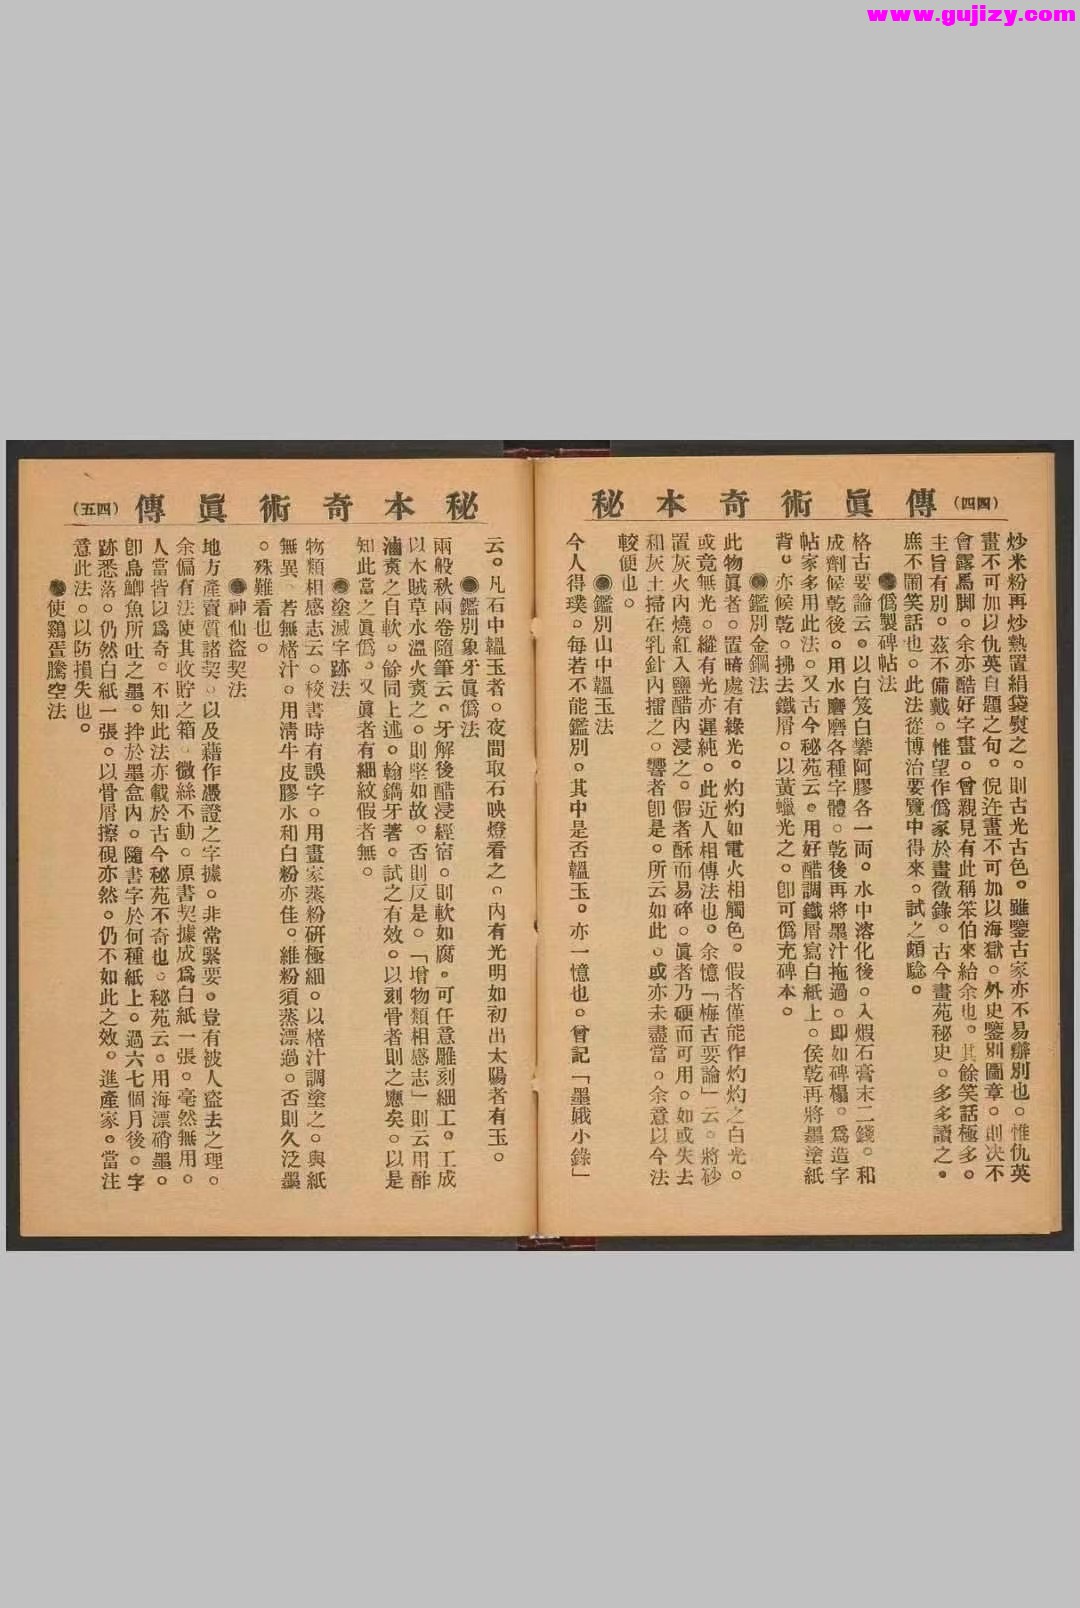 www.gujizy.com
傳眞術奇本祕
（四四）
炒米粉再炒熱置絹袋熨之。則古光古色。雖鑒古家亦不易辦別也。惟仇英
畫不可加以仇英自題之句。倪迕畫不可加以海獄。外史鑒別圖章。則决不
會露馬脚。余亦酷好字畫。曾親見有此稱笨伯來給余也。其餘笑話極多。
主旨有別。茲不備戴。惟望作僞家於畫徵錄。古今畫苑秘史。多多讀之。
庶不鬧笑話也。此法從博治要覽中得來。試之頗騐。
●僞製碑帖法
格古要論云。以白笈白礬阿膠各一両。水中溶化後。入煆石膏末二錢。和
成劑候乾後。用水磨磨各種字體。乾後再將墨汁拖過。即如碑榻。爲造字
帖家多用此法。又古今秘苑云。用好醋調鐵屑寫白紙上。侯乾再將墨塗紙
背。亦候乾。拂去鐵屑。以黃蠟光之。卽可僞充碑本。
●鑑別金鋼法
此物眞者。置暗處有綠光。灼灼如電火相觸色。假者僅能作灼灼之白光。
或竟無光。縱有光亦遲純。此近人相傳法也。余憶「梅古要論」云。將砂
置灰火內燒紅入鹽醋內浸之。假者酥而易碎。眞者乃硬而可用。如或失去
和灰土掃在乳針內擂之。響者卽是。所云如此。或亦未盡當。余意以今法
較便也。
●鑑別山中韞玉法
今人得璞。每若不能鑑別。其中是否韞玉。亦一憶也。曾記「墨娥小錄」
祕本奇術眞傳
（四五）
云。凡石中韞玉者。夜間取石映燈看之。內有光明如初出太陽者有玉。
●鑑別象牙眞僞法
兩般秋兩卷隨筆云。牙解後醋浸經宿。則軟如腐。可任意雕刻細工。工成
以木賊草水溫火煑之。則堅如故。否則反是。「增物類相感志」則云用酢
滷煑之自軟。餘同上述。翰鐫牙著。試之有效。以刻骨者則之應矣。以是
知此當之眞僞。又眞者有細紋假者無。
●塗滅字跡法
物類相感志云。校書時有誤字。用畫家蒸粉研極細。以楮汁調塗之。與紙
無異。若無楮汁。用淸牛皮膠水和白粉亦佳。維粉須蒸漂過。否則久泛墨
。殊難看也。
●神仙盜契法
地方產賣質諸契。以及藉作憑證之字據。非常緊要。豈有被人盜去之理。
余偏有法使其收貯之箱。微絲不動。原書契據成爲白紙一張。毫然無用。
人當皆以爲奇。不知此法亦載於古今秘苑不奇也。秘苑云。用海漂硝墨。
卽烏鯽魚所吐之墨。拌於墨盒內。隨書字於何種紙上。過六七個月後。字
跡悉落。仍然白紙一張。以骨屑擦硯亦然。仍不如此之效。進產家。當注
意此法。以防損失也。
●使鷄蛋騰空法